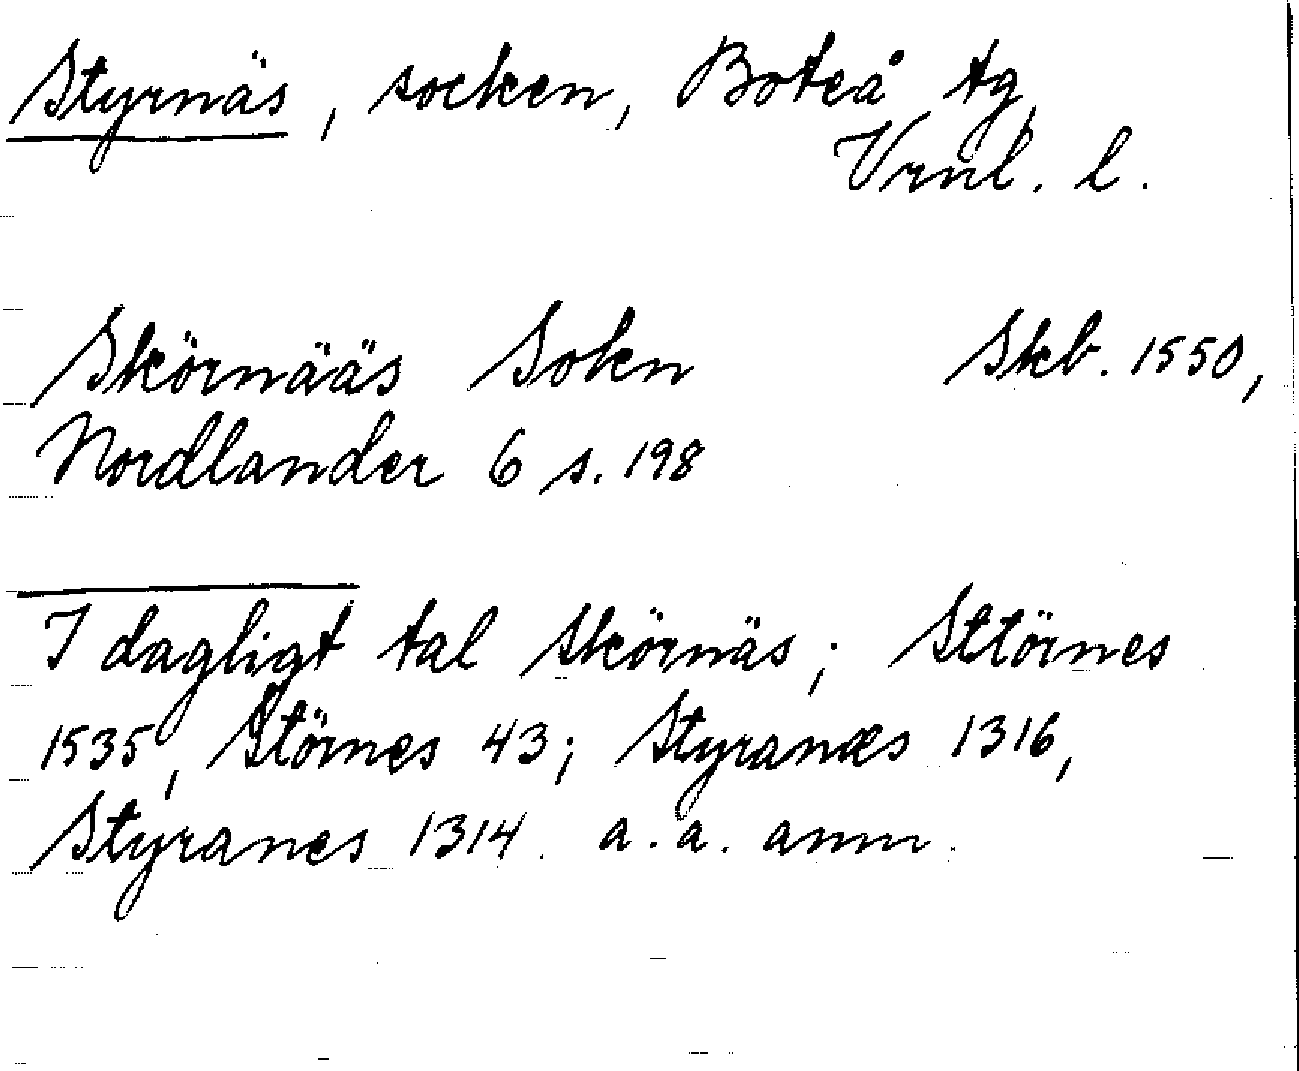 Styrnäs, socken, Boteå tg,
Vrnl. l.
Skörnääs Sokn Skb. 1550,
Nordlander 6 s. 198
I dagligt tal Skörnäs; Sttörnes
1535, Störnes 43; Styranæs 1316,
Styranes 1314. a. a. anm.